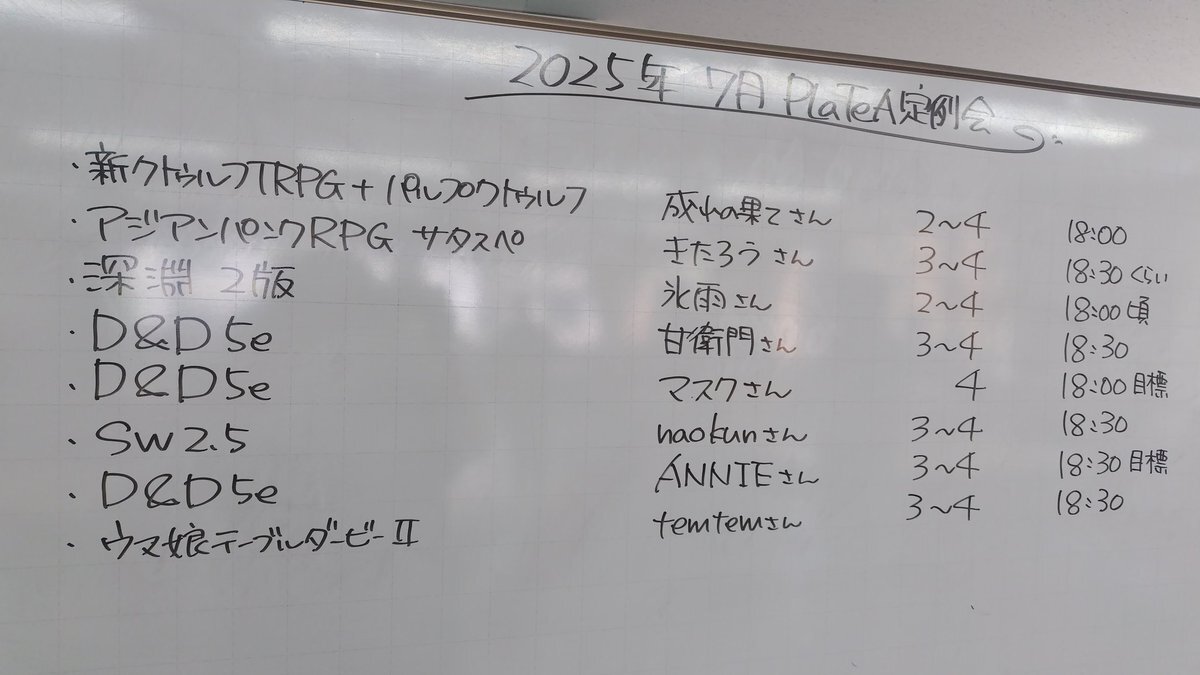 2025年 7月 PlaTeA定例会
・新クトゥルフTRPG+パルプクトゥルフ 成れの果てさん 2~4 18:00
・アジアンパンクRPG サタスペ きたろうさん 3~4 18:30くらい
・深淵 2版 氷雨さん 2~4 18:00頃
・D&D 5e 甘衛門さん 3~4 18:30
・D&D 5e マスクさん 4 18:00目標
・SW2.5 naokunさん 3~4 18:30
・D&D 5e ANNIEさん 3~4 18:30目標
・ウマ娘テーブルダービーII temtemさん 3~4 18:30